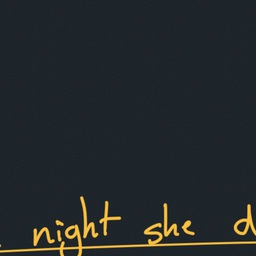 night she